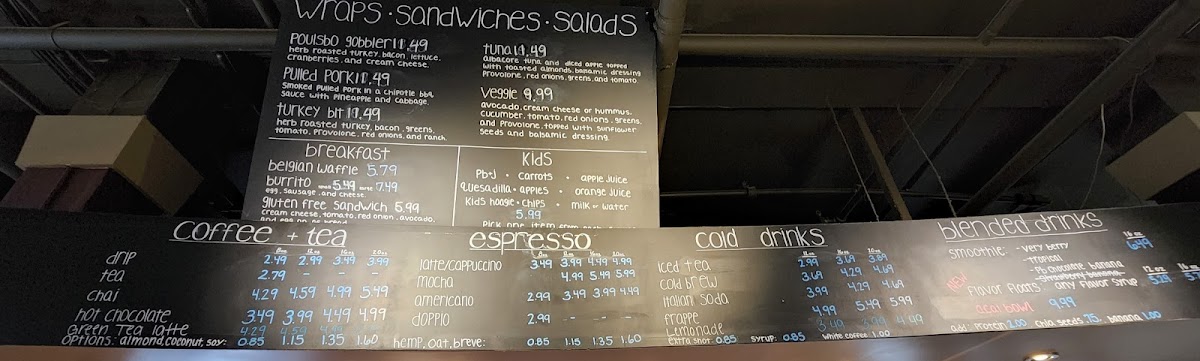 Wraps · Sandwiches · Salads
Poulsbo Gobbler 11.49
herb roasted turkey, bacon, lettuce,
cranberries, and cream cheese.
Pulled Pork 11.49
Smoked pulled pork in a chipotle bbq
sauce with pineapple and cabbage.
turkey blt 11.49
herb roasted turkey, bacon, greens,
tomato, provolone, red onions, and ranch.
tuna 11.49
albacore tuna and diced apple topped
with toasted almonds, balsamic dressing
provolone, red onions, greens, and tomato
veggie 9.99
avocado, cream cheese or hummus,
cucumber, tomato, red onions, greens,
and provolone, topped with sunflower
seeds and balsamic dressing.
breakfast
belgian waffle 5.79
burrito 5.49 7.49
egg, sausage, and cheese
gluten free sandwich 5.99
cream cheese, tomato, red onion, avocado,
Kids
Pb+J · carrots · apple juice
Quesadilla · apples · orange juice
Kids hoagie · chips · milk or water
5.99
Pick one item from each
coffee + tea
8oz 12oz 16oz 20oz
drip 2.49 2.99 3.49 3.99
tea 2.79 - - -
chai 4.29 4.59 4.99 5.49
hot chocolate 3.49 3.99 4.49 4.99
Green Tea latte 4.29 4.59 4.99
options: almond, coconut, soy: 0.85 1.15 1.35 1.60
espresso
8oz 12oz 16oz 20oz
latte/cappuccino 3.49 3.99 4.49 4.99
mocha 4.99 5.49 5.99
americano 2.99 3.49 3.99 4.49
doppio 2.99 - - -
hemp, oat, breve: 0.85 1.15 1.35 1.60
cold drinks
iced tea 2.99 3.49 3.89
cold brew 3.69 4.29 4.69
italian soda 3.99 4.49 4.99
frappe 4.99 5.49 5.99
Lemonade 3.49 4.49
extra shot 0.85 syrup: 0.85 white coffee 1.00
blended drinks
16 oz
smoothie: - very berry 6.49
- tropical
- Pb chocolate banana
- Strawberry banana
12 oz 16
NEW Flavor Floats any flavor syrup 5.29
acai bowl 9.99
add: Protein 2.00 Chia seeds .75 banana 1.00